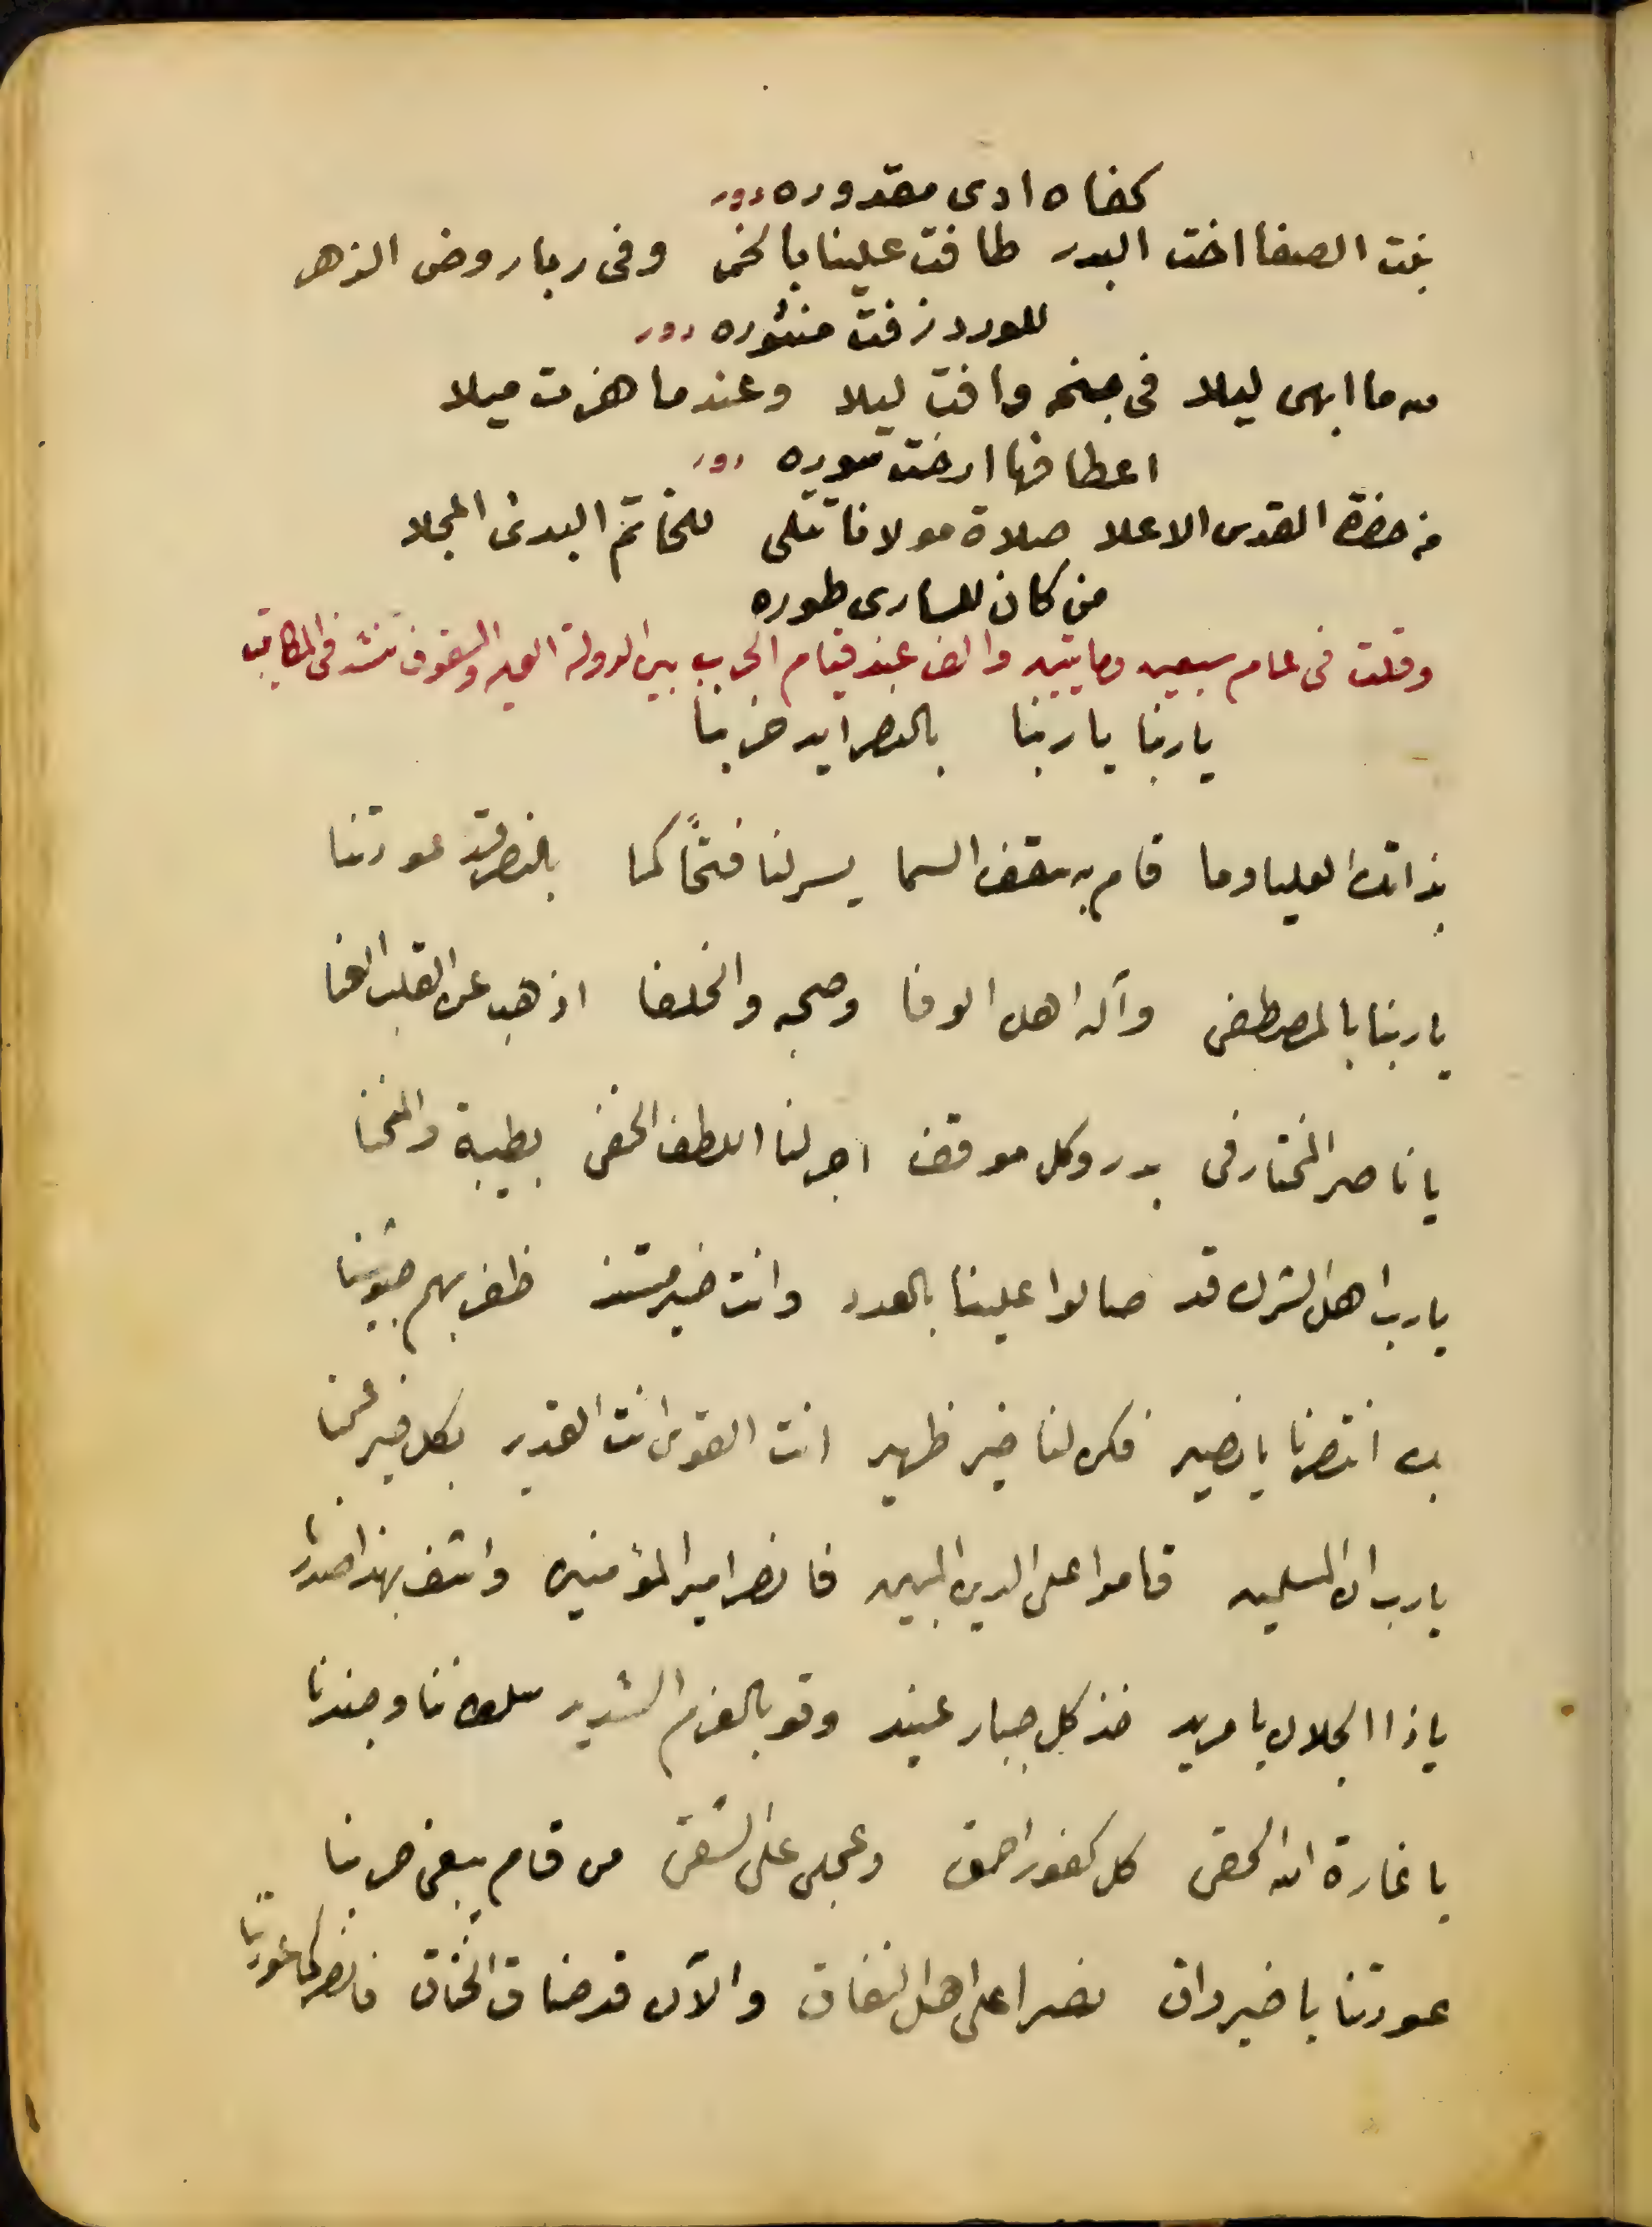 كفاه ادى مقدوره دور
بنت الصفا اخت البدر طافت علينا بالخمر وفى ربا روض الزهر
للورد زفت منثوره دور
ما ابهى ليلا فى جنحه وافت ليلا وعندما هزت ميلا
اعطافها ارخت ستوره دور
من حضرة القدس الاعلا صلاة مولانا تتلى للخاتم البدئ المجلا
من كان للسارى طوره
وقلت فى عام سبعين ومايتين والف عند قيام الحرب بين الدولة العليه والسقوف تنشد فى المكاتب
ياربنا ياربنا بالنصر ايد حزبنا
بذاتك العليا وما قام به سقف السما يسر لنا فتحًا كما بالنصر قد عودتنا
ياربنا بالمصطفى وآله اهل الوفا وصحبه والخلفا اذهب عن القلب العنا
يا ناصر المختار فى بدر وكل موقف اجر لنا اللطف الخفى بطيبة والمنحنا
يارب اهل الشرك قد صالوا علينا بالعدد وانت خير مستند ظفر بهم جيوشنا
بك انتصرنا يا نصير فكن لنا خير ظهير انت القوى انت القدير بكل خير عمنا
يارب ان المسلمين قاموا على الدين المبين فانصر امير المؤمنين واشف بهذا صدرنا
ياذا الجلال يا مريد خذ كل جبار عنيد وقو بالعزم الشديد سلطاننا وجندنا
يا غارة الله الحقى كل كفور احمق وعجلى على الشقى من قام يبغى حربنا
عودتنا يا خير واق نصرا على اهل النفاق والآن قد ضاق الخناق فانصر كما عودتنا